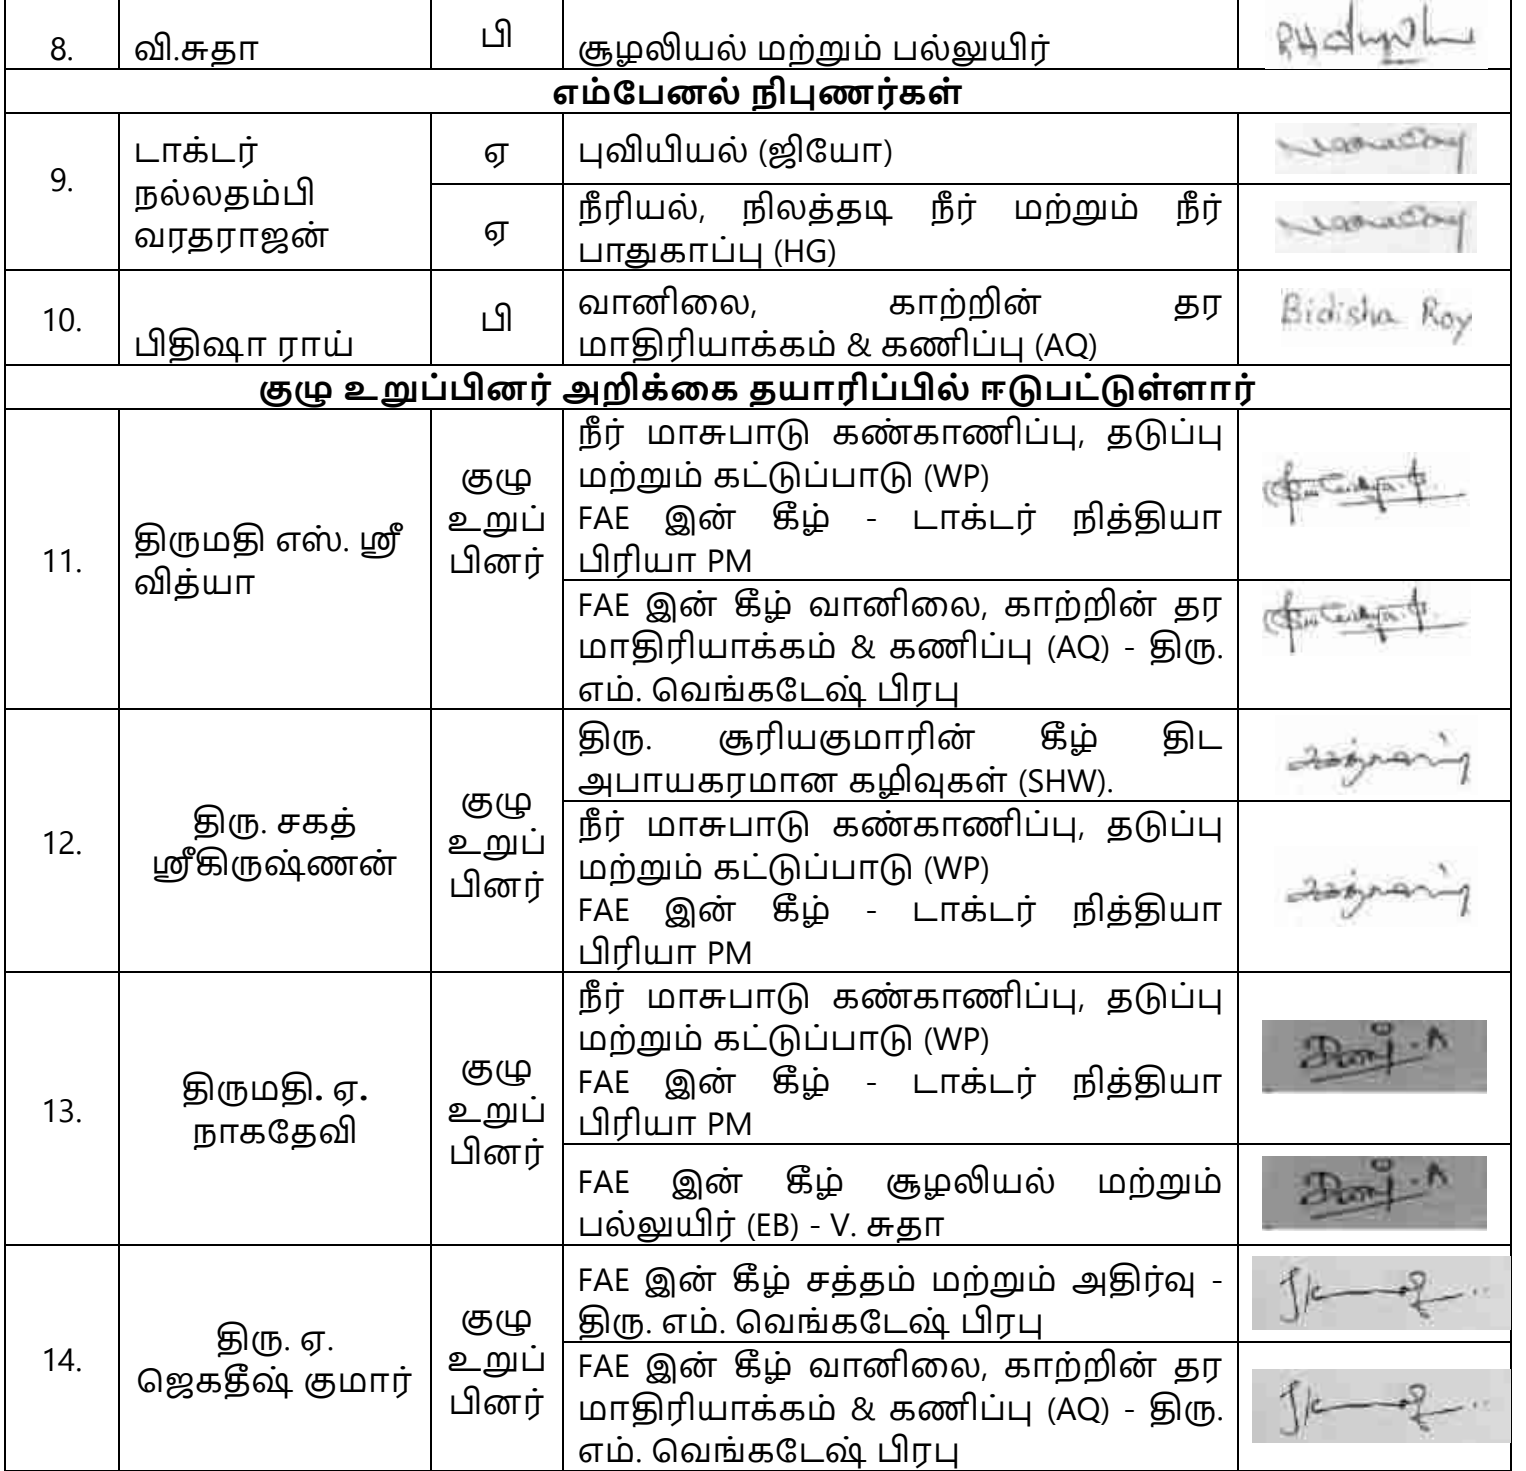 8. வி.சுதா பி சூழலியல் மற்றும் பல்லுயிர்
எம்பேனல் நிபுணர்கள்
9. டாக்டர்
நல்லதம்பி
வரதராஜன்
ஏ புவியியல் (ஜியோ)
ஏ நீரியல், நிலத்தடி நீர் மற்றும் நீர்
பாதுகாப்பு (HG)
10. பிதிஷா ராய் பி வானிலை, காற்றின் தர
மாதிரியாக்கம் & கணிப்பு (AQ)
Bidisha Roy
குழு உறுப்பினர் அறிக்கை தயாரிப்பில் ஈடுபட்டுள்ளார்
11. திருமதி எஸ். ஸ்ரீ
வித்யா
குழு
உறுப்
பினர்
நீர் மாசுபாடு கண்காணிப்பு, தடுப்பு
மற்றும் கட்டுப்பாடு (WP)
FAE இன் கீழ் - டாக்டர் நித்தியா
பிரியா PM
FAE இன் கீழ் வானிலை, காற்றின் தர
மாதிரியாக்கம் & கணிப்பு (AQ) - திரு.
எம். வெங்கடேஷ் பிரபு
12. திரு. சகத்
ஸ்ரீகிருஷ்ணன்
குழு
உறுப்
பினர்
திரு. சூரியகுமாரின் கீழ் திட
அபாயகரமான கழிவுகள் (SHW).
நீர் மாசுபாடு கண்காணிப்பு, தடுப்பு
மற்றும் கட்டுப்பாடு (WP)
FAE இன் கீழ் - டாக்டர் நித்தியா
பிரியா PM
13. திருமதி. ஏ.
நாகதேவி
குழு
உறுப்
பினர்
நீர் மாசுபாடு கண்காணிப்பு, தடுப்பு
மற்றும் கட்டுப்பாடு (WP)
FAE இன் கீழ் - டாக்டர் நித்தியா
பிரியா PM
FAE இன் கீழ் சூழலியல் மற்றும்
பல்லுயிர் (EB) - V. சுதா
14. திரு. ஏ.
ஜெகதீஷ் குமார்
குழு
உறுப்
பினர்
FAE இன் கீழ் சத்தம் மற்றும் அதிர்வு -
திரு. எம். வெங்கடேஷ் பிரபு
FAE இன் கீழ் வானிலை, காற்றின் தர
மாதிரியாக்கம் & கணிப்பு (AQ) - திரு.
எம். வெங்கடேஷ் பிரபு